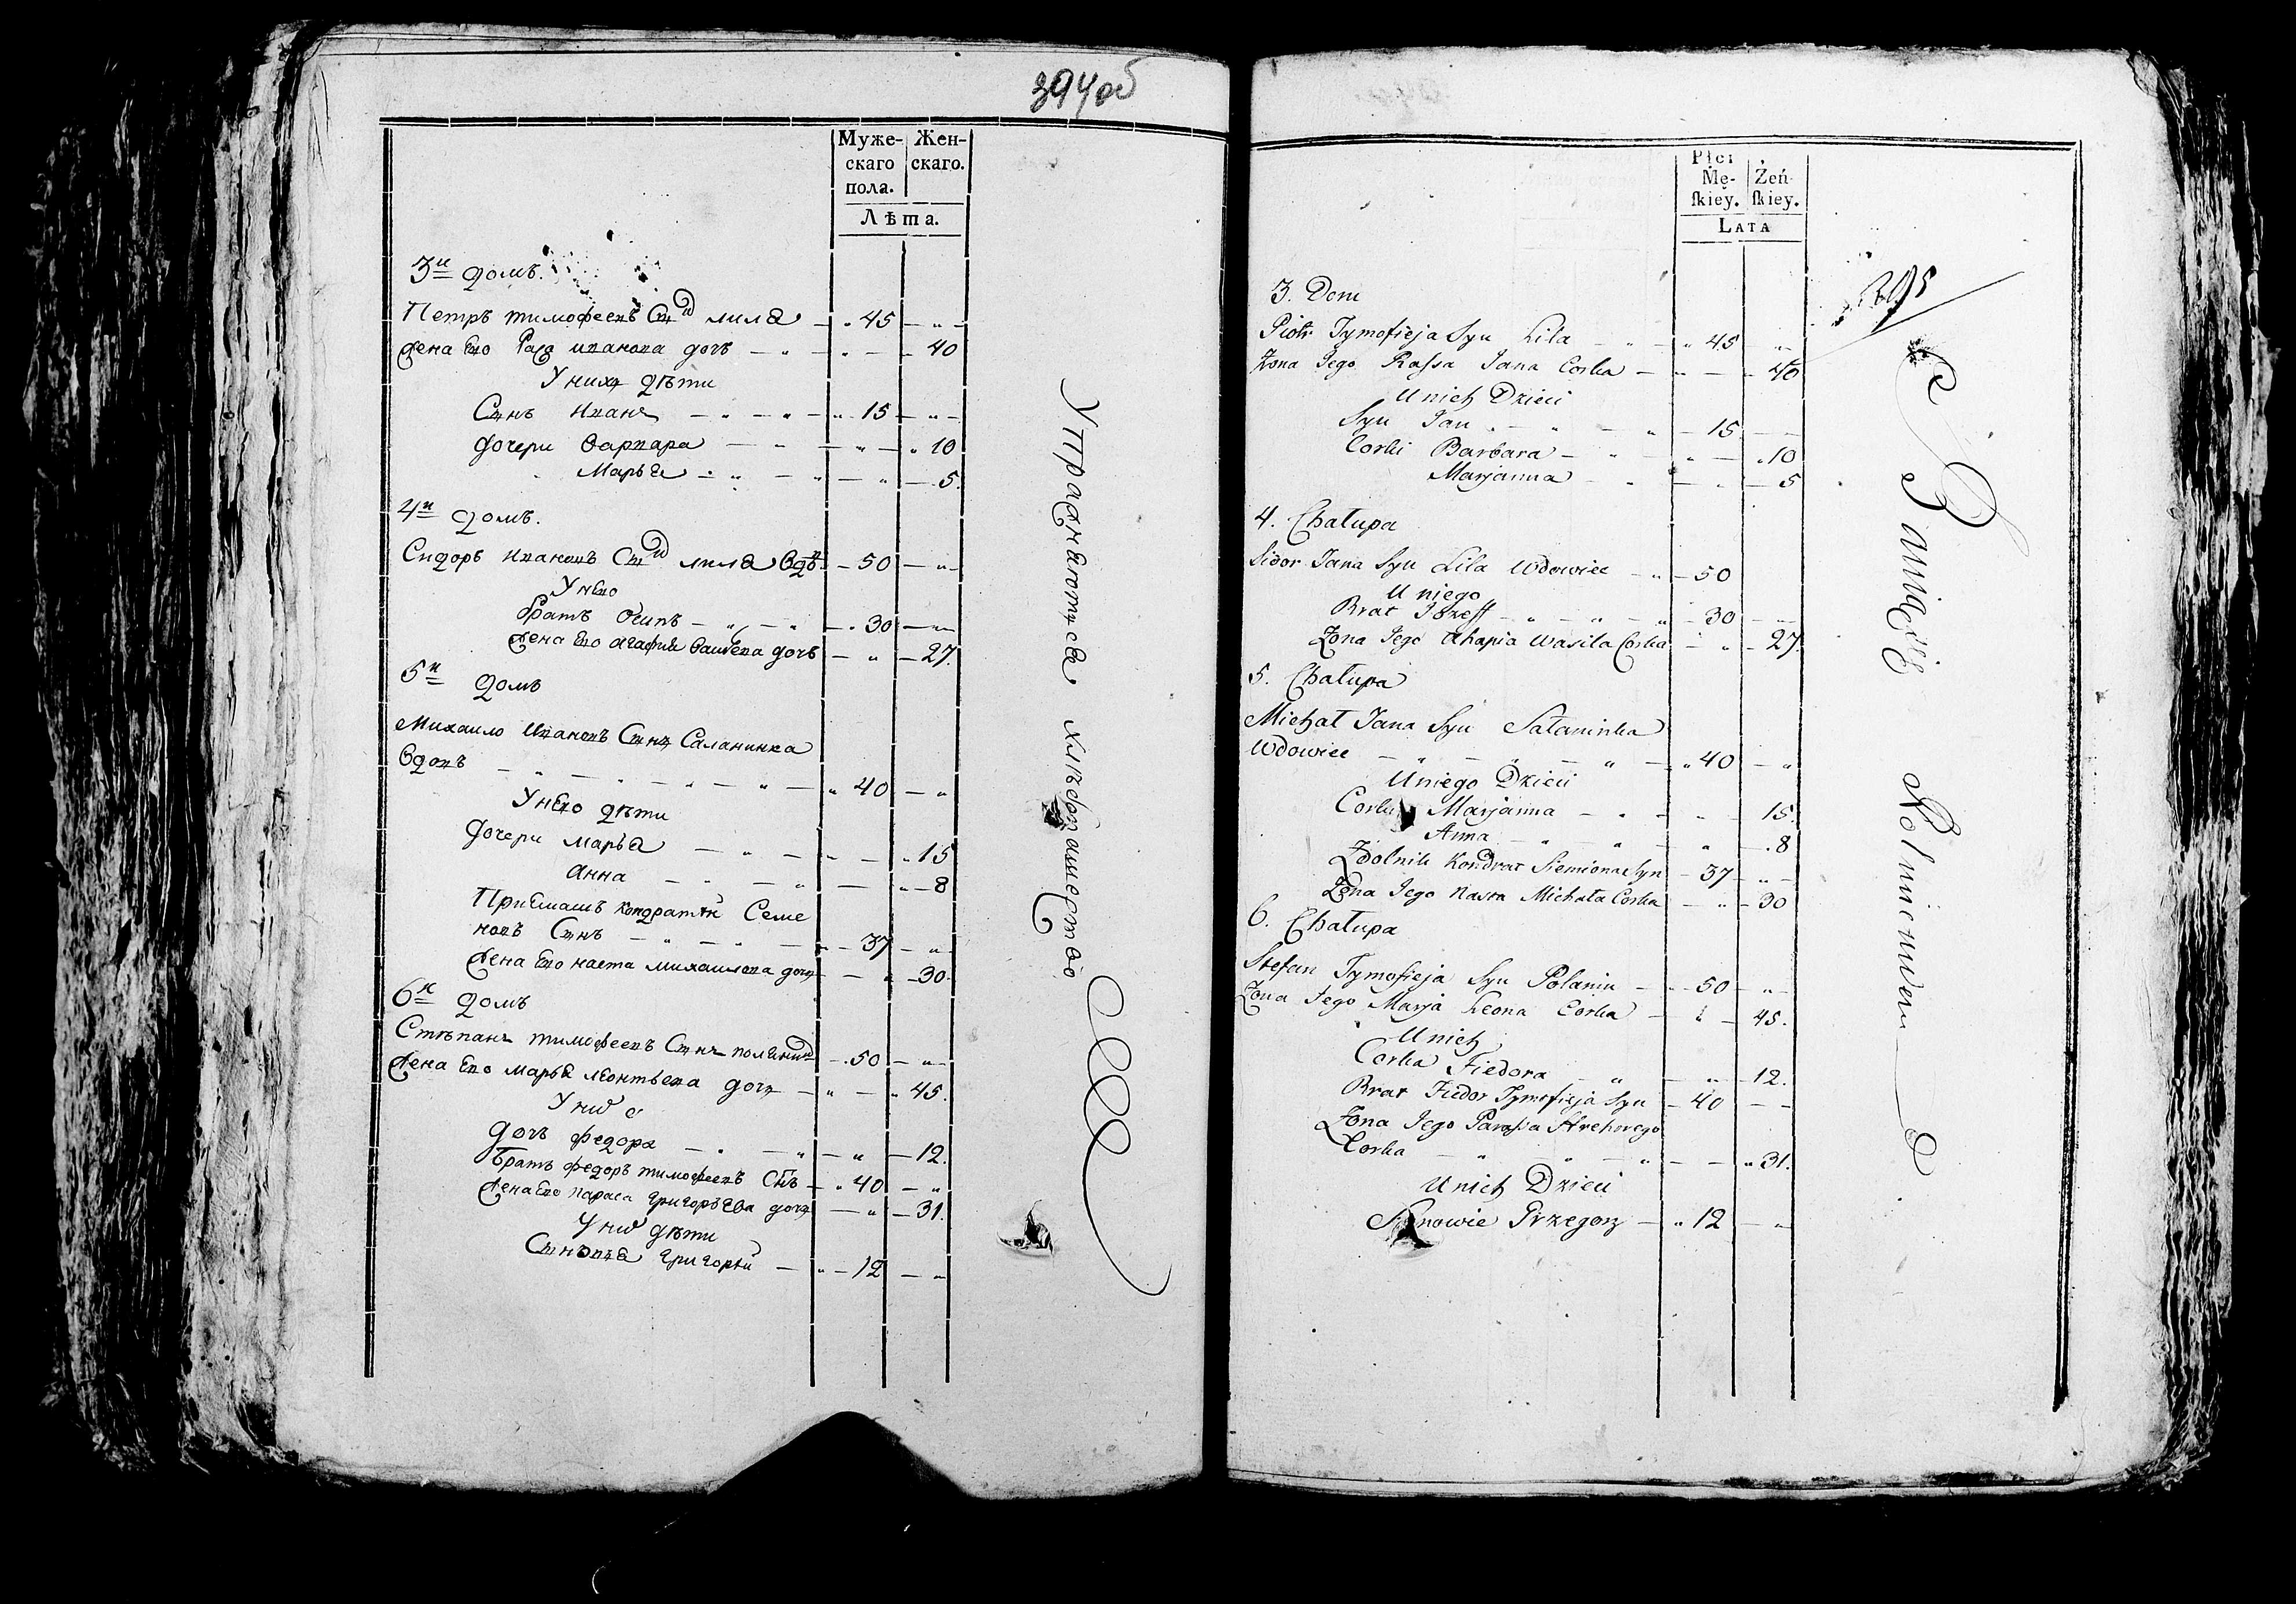 394об
Муже- Жен-
скаго скаго.
пола.
Лѣта.
3й домъ.
Петръ тимофеевъ Снъ лила — " 45 — " —
жена Его Раса иванова дочъ — " — " — — 40
У нихъ дѣти
Сынъ иванъ — " — " — " 15 — " —
дочери варвара — " — " — " 10
Марья — " — " — " — 5.
4й домъ.
Сидоръ ивановъ Снъ лила вдвъ — 50 — " —
У него
братъ Осипъ — " — " — 30 — " —
жена Его агафия васильева дочъ — " — 27.
5й домъ
Михаило Ивановъ Сынъ Саланинка
вдовъ — " — " — " — " — " 40 — "
У него дѣти
дочери марья — " — " — " 15
анна — " — " — " — 8
Приемышъ кондратий Семе
новъ Сынъ — " — " — " — 37 — "
жена Его наста михаилова дочъ — " — 30.
6й домъ
Степанъ тимофеевъ Сынъ полянин — 50 — " —
жена Его марья леонтьева дочъ — " — " 45.
У них
дочъ федора — " — " — " — 12.
братъ федоръ тимофеевъ Снъ — " 40 — "
жена Его параса григорьева дочъ — " — 31.
У них дѣти
Сыновья григорий — " — 12 — "
Упражняютца хлѣбопашествомъ
Płci
Mę- Żeń-
ſkiey. ſkiey.
LATA
395
3. Dom
Piotr Tymofieja Syn Lila — " — " 45 — " —
Żona Jego Raſsa Jana Corka — " — — 40
U nich Dzieci
Syn Jan — " — " — 15 — —
Corki Barbara — " — " — " 10
Marjanna — " — " — 5
4. Chałupa
Sidor Jana Syn Lila Wdowiec — " — 50
U niego
Brat Jozeff — " — " — " — 30 — —
Żona Jego Ahapia Wasila Corka — " — 27.
5. Chałupa
Michał Jana Syn Sałaninka
Wdowiec — " — " — " — " 40 — "
U niego Dzieci
Corki Marjanna — " — " — 15.
Anna — " — " — " — " 8
Zdolnik Kondrat Siemiona Syn — 37 — " —
Żona Jego Nasta Michała Corka — " — 30
6. Chałupa
Stefan Tymofieja Syn Polanin — — 50 — " —
Żona Jego Marja Leona Corka — " — 45.
U nich
Corka Fiedora — " — " — 12.
Brat Fiedor Tymofieja Syn — 40 — —
Żona Jego Paraſsa Hrehorego
Corka — " — " — " — — " 31.
U nich Dzieci
Synowie Grzegorz — " 12 — "
Bawią się Rolnictwem